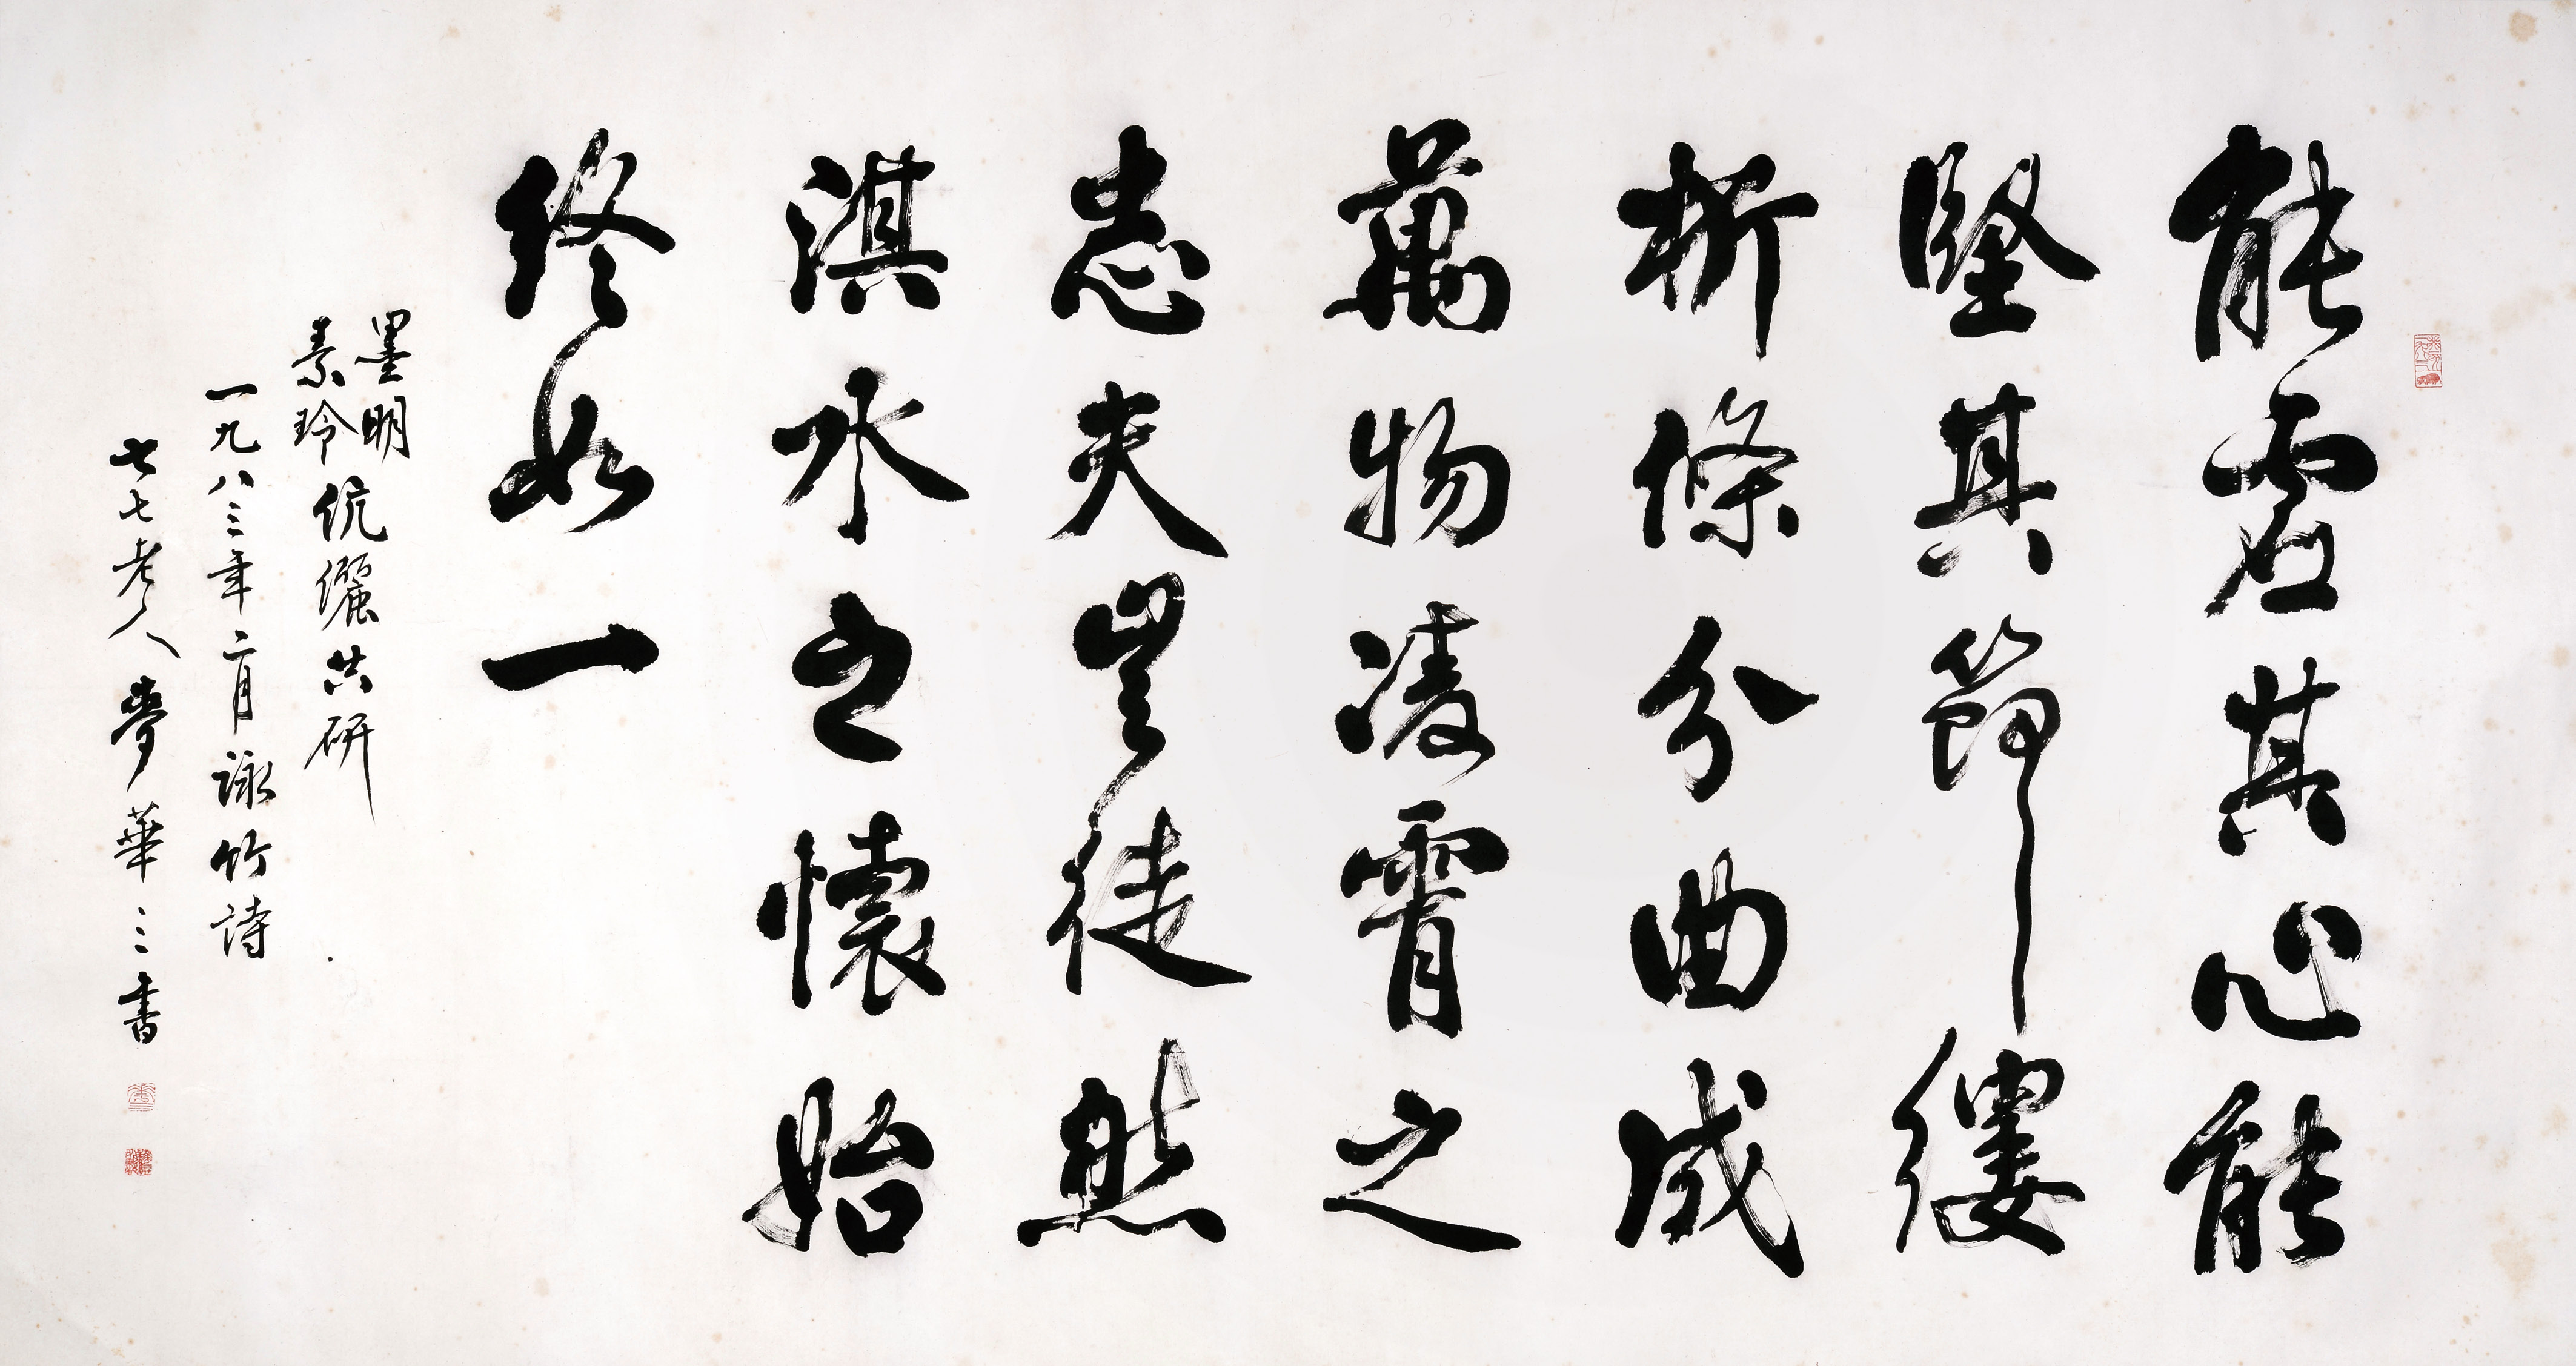 能虛其心能
堅其節縷
析條分曲成
萬物凌霄之
志夫豈徒然
淇水之懷始
終如一
墨明
素玲 伉儷共研
一九八三年二月詠竹詩
七七老人夢華三書